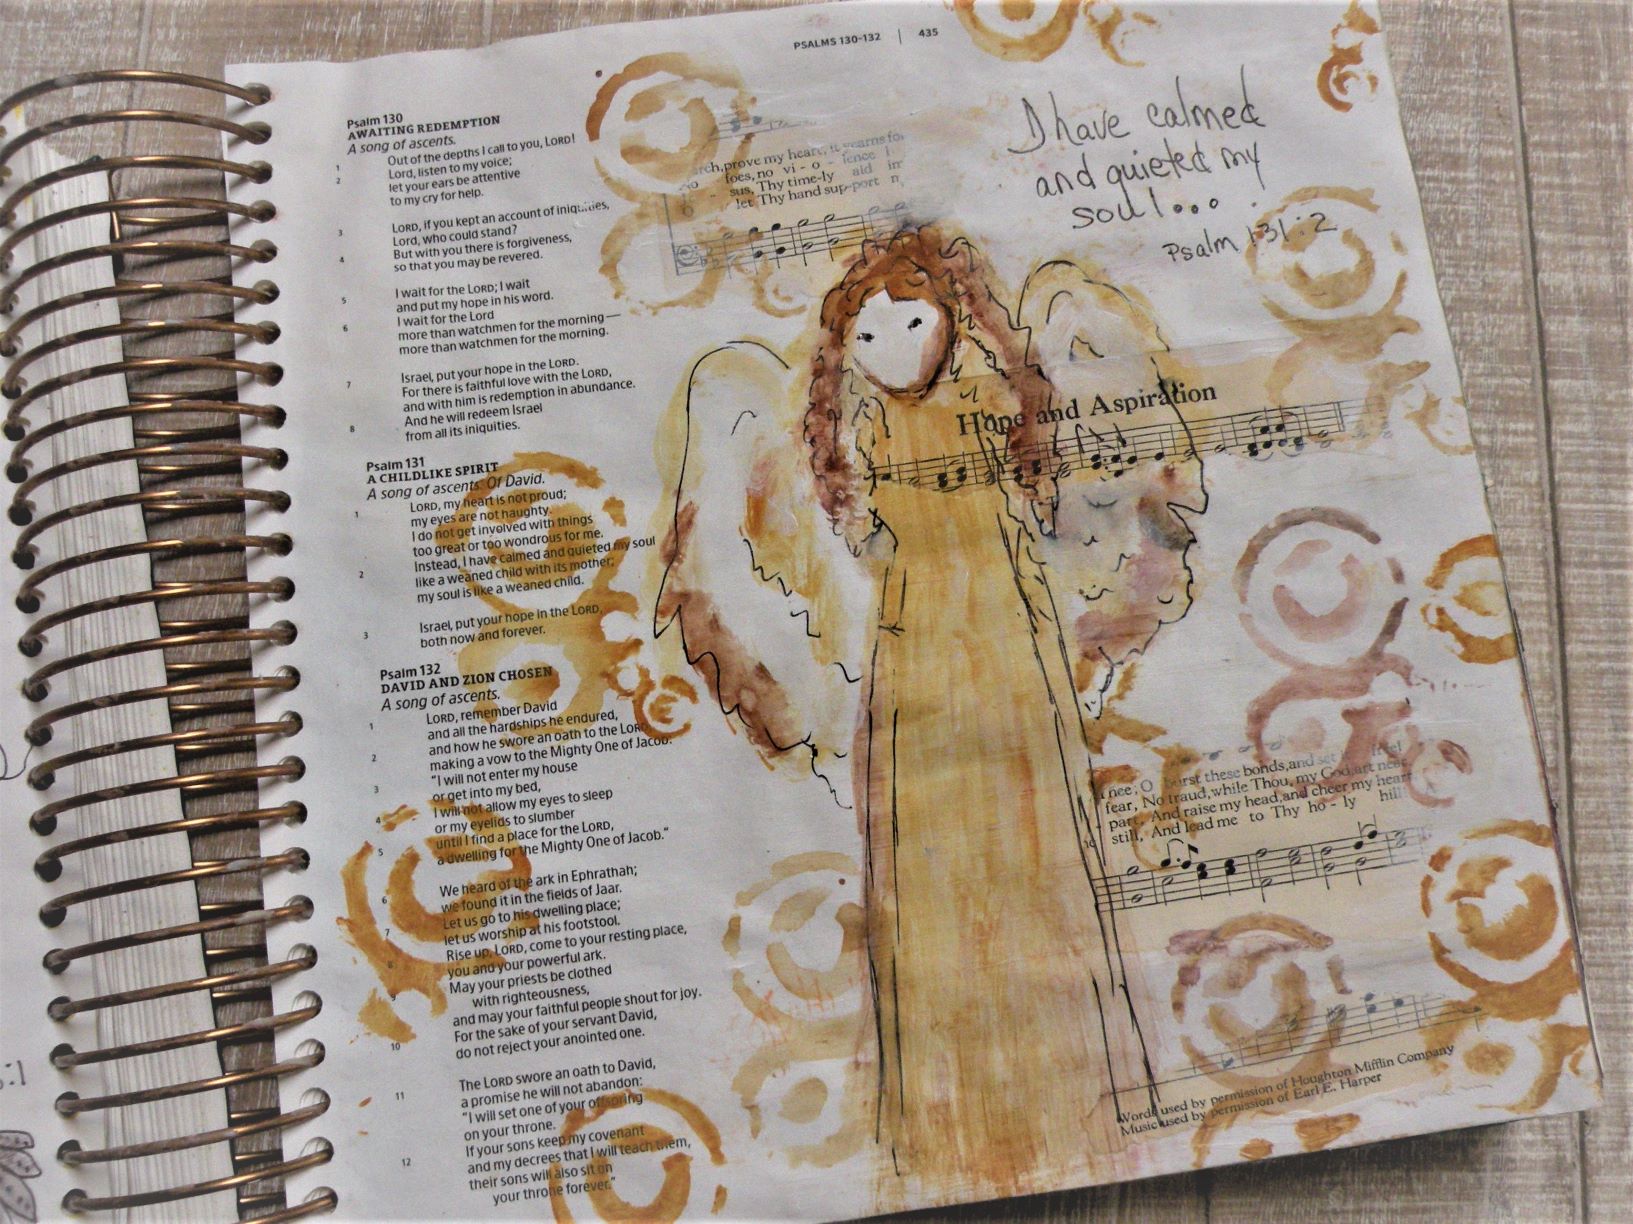 PSALMS 130-132 | 435
Psalm 130
AWAITING REDEMPTION
A song of ascents.
1 Out of the depths I call to you, LORD!
2 Lord, listen to my voice;
let your ears be attentive
to my cry for help.
3 LORD, if you kept an account of iniquities,
Lord, who could stand?
4 But with you there is forgiveness,
so that you may be revered.
5 I wait for the LORD; I wait
and put my hope in his word.
6 I wait for the Lord
more than watchmen for the morning—
more than watchmen for the morning.
7 Israel, put your hope in the LORD.
For there is faithful love with the LORD,
and with him is redemption in abundance.
8 And he will redeem Israel
from all its iniquities.
Psalm 131
A CHILDLIKE SPIRIT
A song of ascents. Of David.
1 LORD, my heart is not proud;
my eyes are not haughty.
I do not get involved with things
too great or too wondrous for me.
2 Instead, I have calmed and quieted my soul
like a weaned child with its mother;
my soul is like a weaned child.
3 Israel, put your hope in the LORD,
both now and forever.
Psalm 132
DAVID AND ZION CHOSEN
A song of ascents.
1 LORD, remember David
and all the hardships he endured,
2 and how he swore an oath to the LORD,
making a vow to the Mighty One of Jacob:
3 "I will not enter my house
or get into my bed,
4 I will not allow my eyes to sleep
or my eyelids to slumber
5 until I find a place for the LORD,
a dwelling for the Mighty One of Jacob."
6 We heard of the ark in Ephrathah;
we found it in the fields of Jaar.
7 Let us go to his dwelling place;
let us worship at his footstool.
8 Rise up, LORD, come to your resting place,
you and your powerful ark.
9 May your priests be clothed
with righteousness,
and may your faithful people shout for joy.
10 For the sake of your servant David,
do not reject your anointed one.
11 The LORD swore an oath to David,
a promise he will not abandon:
"I will set one of your offspring
on your throne.
12 If your sons keep my covenant
and my decrees that I will teach them,
their sons will also sit on
your throne forever."
I have calmed
and quieted my
soul...
Psalm 131:2
prove my heart, it yearns for
No foes, no vi - o - lence I
sus, Thy time-ly aid im
O let Thy hand sup-port
Hope and Aspiration
Thee; O burst these bonds, and set free!
fear, No fraud, while Thou, my God, art near
part, And raise my head, and cheer my heart
still, And lead me to Thy ho - ly hill
Words used by permission of Houghton Mifflin Company
Music used by permission of Earl E. Harper
:1